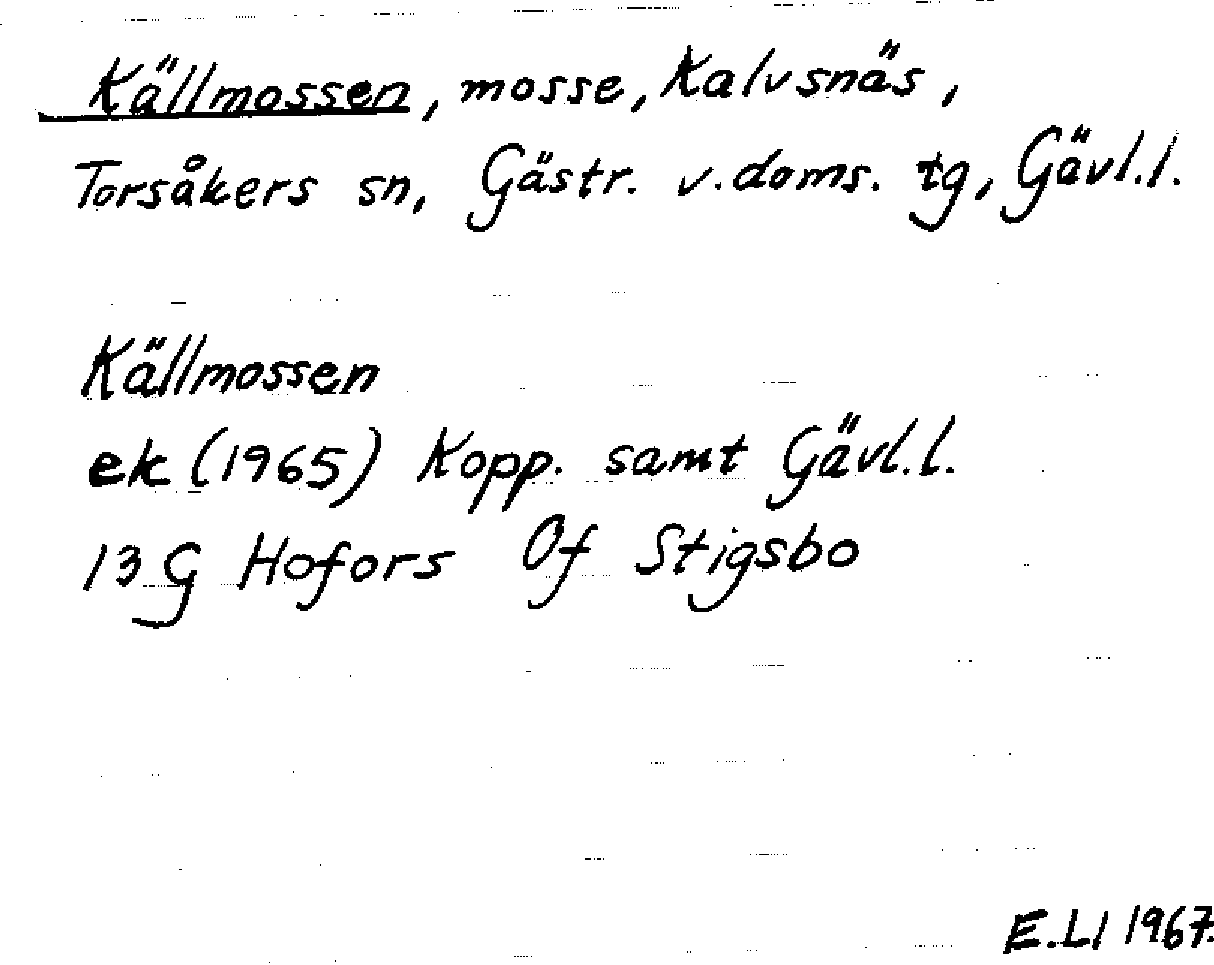 Källmossen, mosse, Kalvsnäs,
Torsåkers sn, Gästr. v. doms. tg, Gävl.l.
Källmossen
ek (1965) Kopp. samt Gävl.l.
13G Hofors 0f Stigsbo
E.Ll 1967.